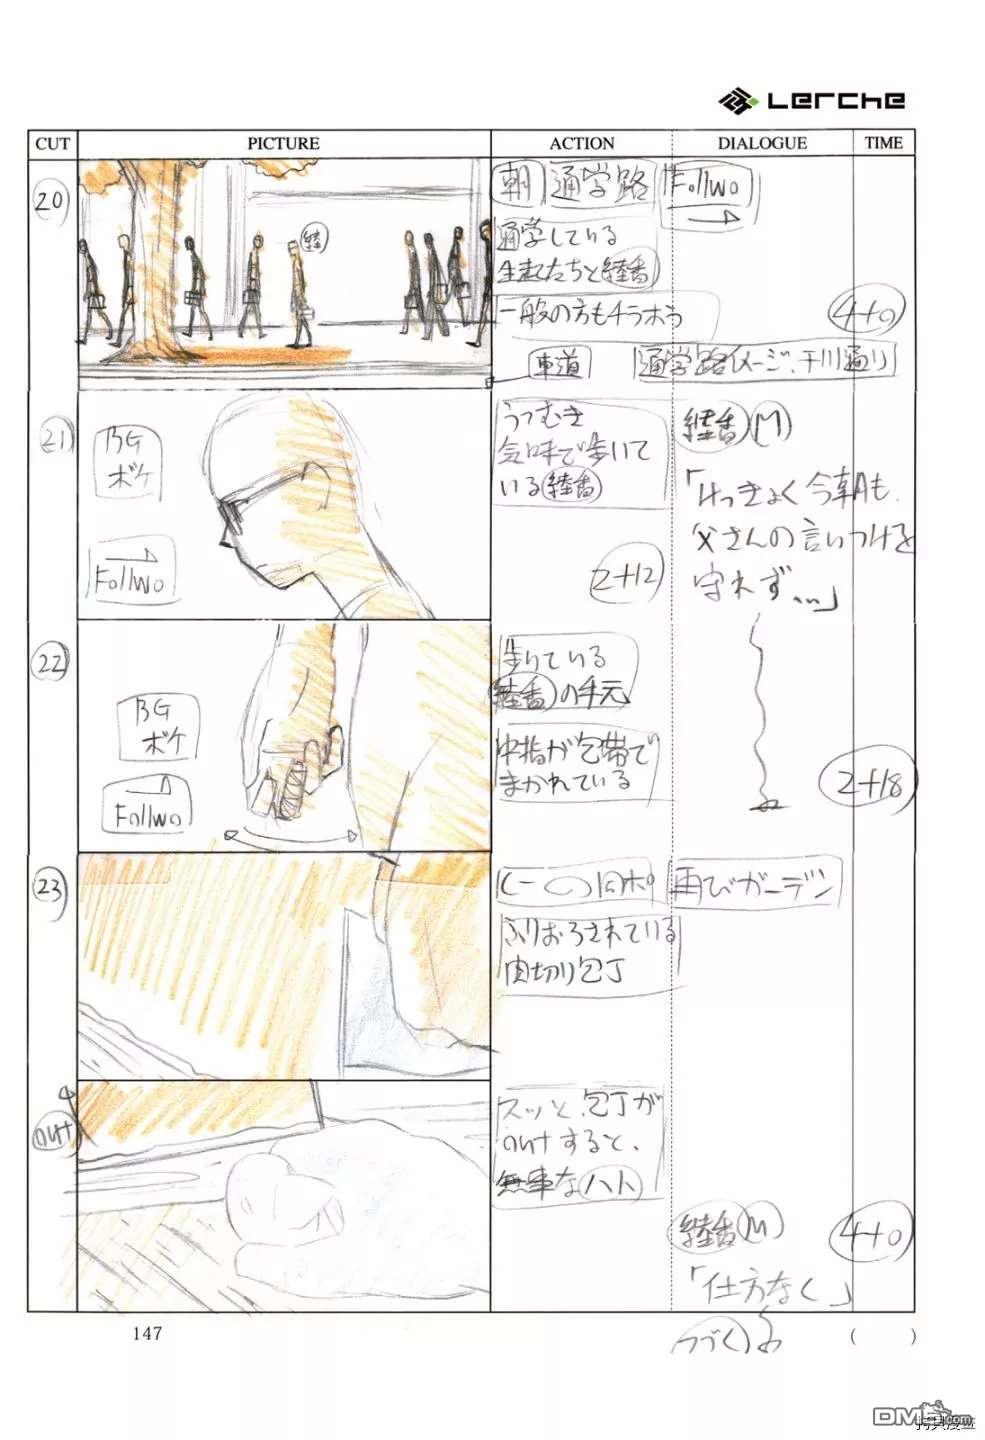 Lerche
CUT PICTURE ACTION DIALOGUE TIME
20
朝 通学路 Follwo
通学している
生徒たちと
一般の方もチラホラ
4+0
車道
通学路イメージ、千川通り
21
BG
ボケ
Follwo
うつむき
気味で歩いて
いる
2+12
M
「けっきょく今朝も、
父さんの言いつけを
守れず…」
22
BG
ボケ
Follwo
歩いている
の手元
中指が包帯で
まかれている
2+18
23
の同ポ 再びガーデン
ふりおろされている
肉切り包丁
out
スッと、包丁が
outすると、
無事なハト
M
4+0
「仕方なく」
つづく
147
( )
DM5.com
拷贝漫画